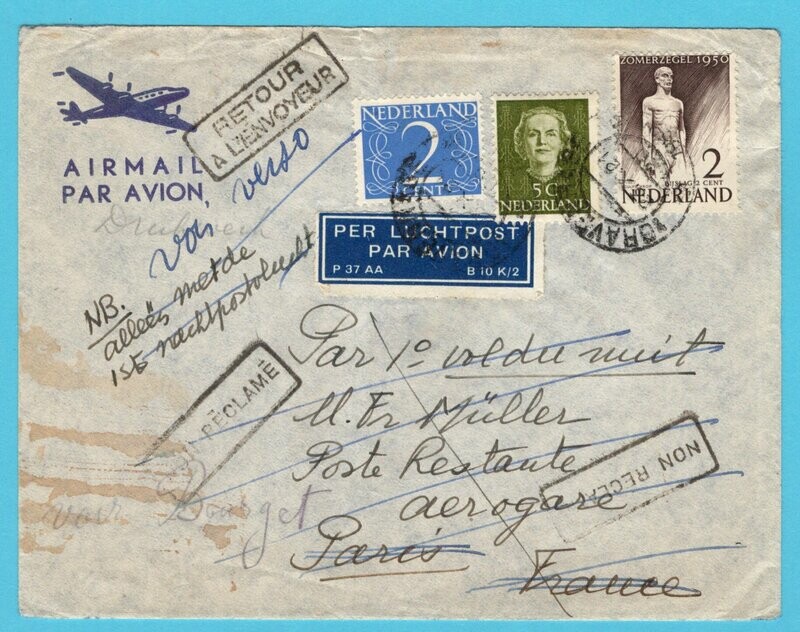 RETOUR
À L'ENVOYEUR
AIRMAIL
PAR AVION,
voir verso
Drukwerk
NB.
alleen met de
1ste nachtpostvlucht
NEDERLAND
2
CENT
5 C
NEDERLAND
ZOMERZEGEL 1950
2
BIJSLAG 2 CENT
NEDERLAND
PER LUCHTPOST
PAR AVION
P 37 AA B 10 K/2
Par 1e vol de nuit
M. Fr Müller
Poste Restante
aerogare
Paris
France
RÉCLAMÉ
NON RÉCLA
voir Bourget